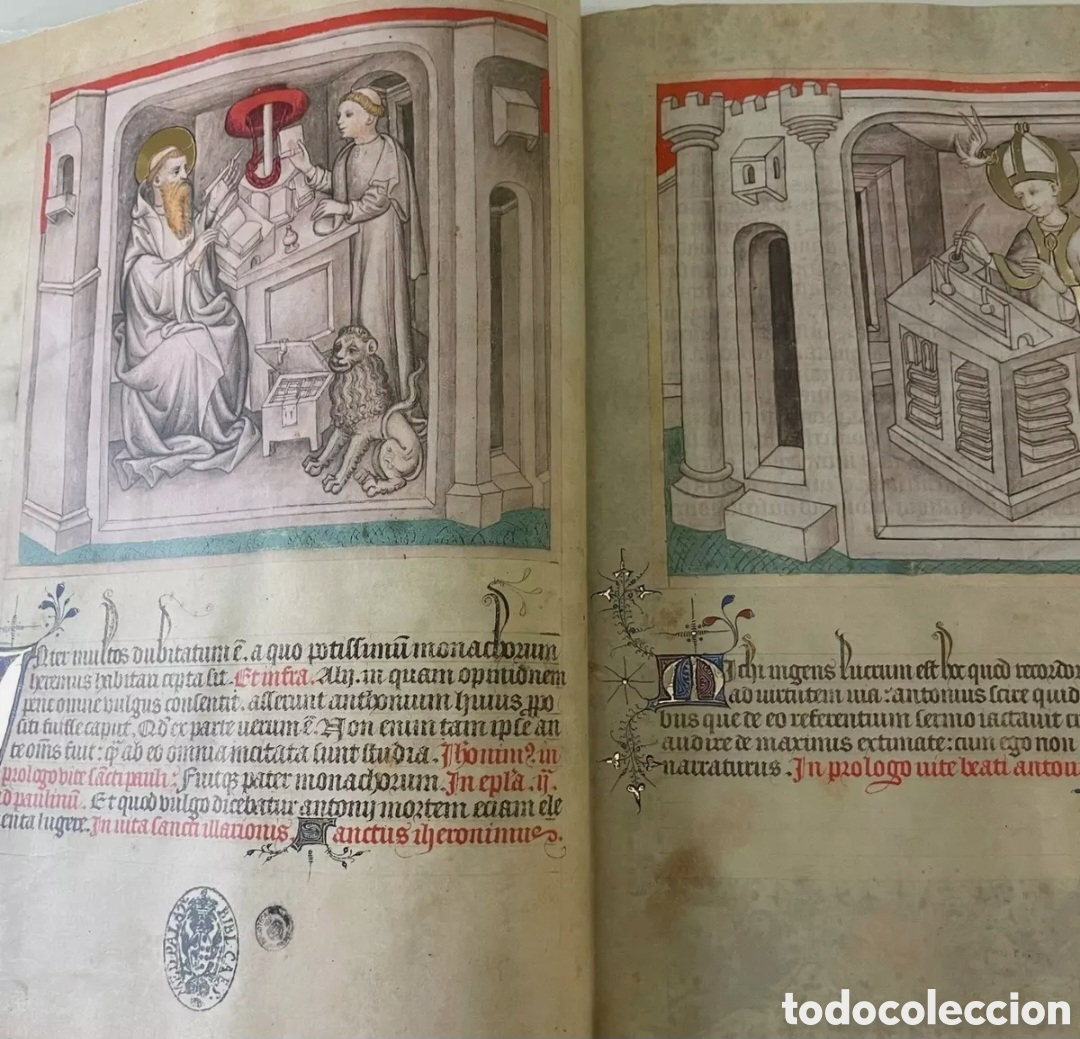 Inter multos dubitatum ē. a quo potissimū monachorum
heremus habitari cepta sit. Et infra. Alij. in quam opinionem
omne vulgus consentit. asserunt anthonium huius ꝓpo
siti fuisse caput. Qd ex parte verum ē. Non enim tam ipse an
te oms fuit: qͣ ab eo omnia incitata sunt studia. Jheronimꝰ. in
prologo vite sācti pauli: Fuitqꝫ pater monachorum. In epla. ij.
ad paulinū. Et quod vulgo dicebatur antonij mortem eciam ele
menta lugere. In vita sancti illarionis. Sanctus iheronimus.
BIBL. CAES.
Michi ingens lucrum est hoc quod recordor
ad virtutem via: antonius scire quid
bus que de eo referentium sermo iactavit
audire de maximis extimate: cum ego non
narraturus. In prologo vite beati anton
todocoleccion